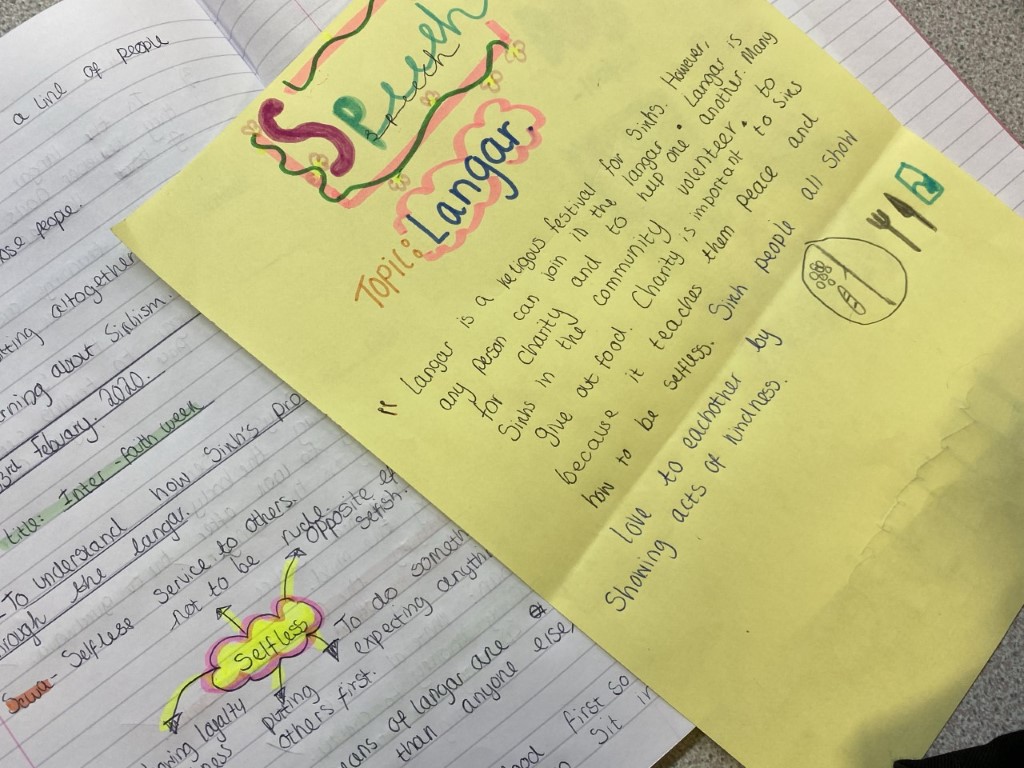 a line of people
ose people.
tting altogether
rning about Sikhism.
3rd Febuary. 2020.
title: Inter-faith week
To understand how Sikh's pro
hrough the langar.
Sewa- Selfless service to others
not to be rude
opposite
selfish.
Selfless
To do someth
expecting anyth
putting
others first.
wing loyalty
ness
eans of langar are
than anyone else,
ood first so
sit in
Speech
speech
Topic: Langar.
" Langar is a religous festival for Sikhs. However,
any person can join in the langar. Langar is
for Charity and to help one another. Many
Sikhs in the community volenteer to
give out food. Charity is important to Siks
because it teaches them peace and
how to be selfless. Sikh people all show
love to eachother by
Showing acts of kindness.